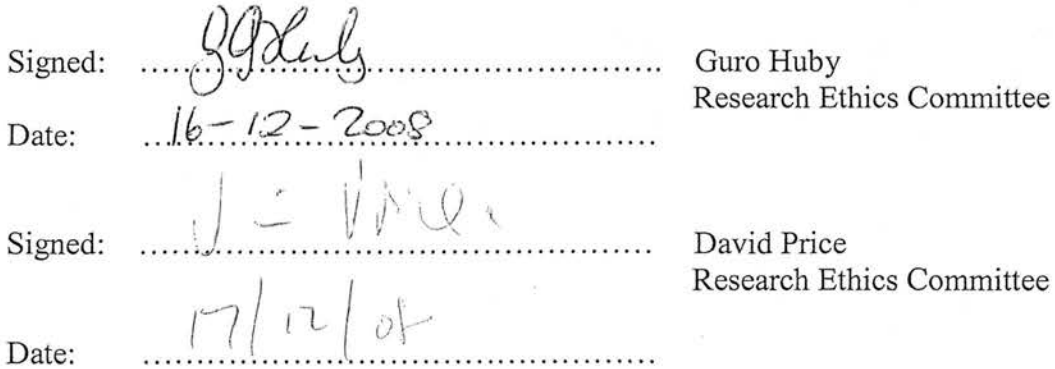 Signed: Guro Huby
Research Ethics Committee
Date: 16-12-2008
Signed: David Price
Research Ethics Committee
Date: 17/12/08